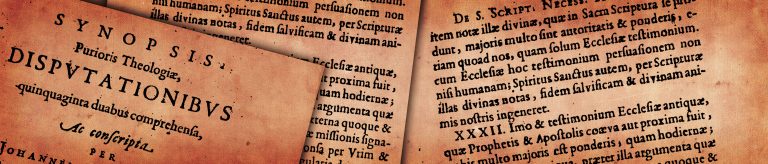 SYNOPSIS,
Purioris Theologiæ,
DISPVTATIONIBVS
quinquaginta duabus comprehensa,
Ac conscripta
PER
JOHANNE
testimonium persuasionem non
humanam; Spiritus Sanctus autem, per Scripturæ
notas, fidem salvificam & divinam ani-
Ecclesiæ antiquæ,
aut proxima fuit,
quam hodiernæ;
argumenta quæ
terna quoque &
missionis signa-
per Vrim &
DE S. SCRIPT. NECESS.
item notæ illæ divinæ, quæ in Sacra Scriptura se pro-
dunt, majoris multo sint autoritatis & ponderis, e-
tiam quoad nos, quam solum Ecclesiæ testimonium.
cum Ecclesiæ hoc testimonium persuasionem non
nisi humanam; Spiritus Sanctus autem, per Scripturæ
illas divinas notas, fidem salvificam & divinam ani-
mis nostris ingeneret.
XXXII. Imo & testimonium Ecclesiæ antiquæ,
quæ Prophetis & Apostolis coæva aut proxima fuit,
majoris multo est ponderis, quam hodiernæ;
præter illa argumenta quæ